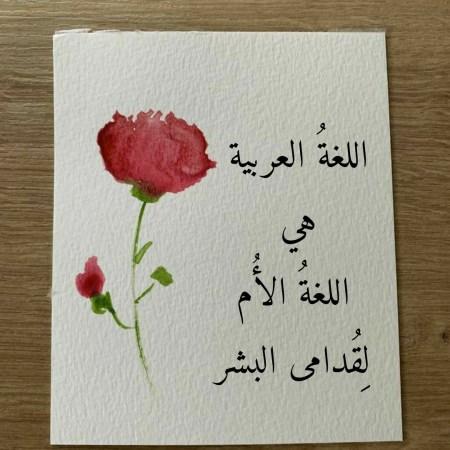 اللغةُ العربية
هي
اللغةُ الأُم
لِقُدامى البشر